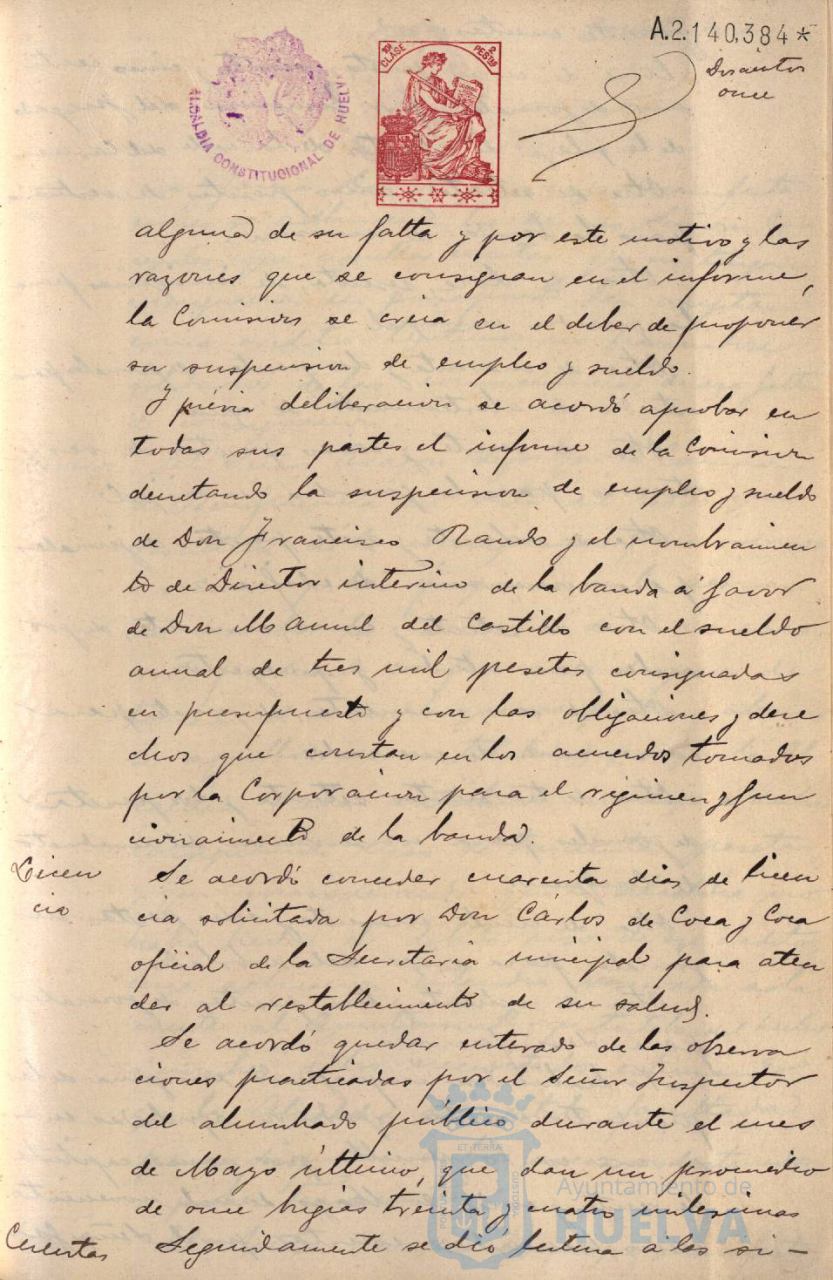 A.2.140,384*
Doscientos
once
ALCALDIA CONSTITUCIONAL DE HUELVA
10ª CLASE
2 PESTAS
alguna de su falta y por este motivo y las
razones que se consignan en el informe,
la Comision se creia en el deber de proponer
su suspension de empleo y sueldo.
Y prévia deliberacion se acordó aprobar en
todas sus partes el informe de la Comision
decretando la suspension de empleo y sueldo
de Don Francisco Rando y el nombramien
to de Director interino de la banda á favor
de Don Manuel del Castillo con el sueldo
anual de tres mil pesetas consignadas
en presupuesto y con las obligaciones y dere
chos que constan en los acuerdos tomados
por la Corporacion para el régimen y fun
cionamiento de la banda.
Licen
cia
Se acordó conceder cuarenta dias de licen
cia solicitada por Don Cárlos de Coca y Coca
oficial de la Secretaria municipal para aten
der al restablecimiento de su salud.
Se acordó quedar enterado de las observa
ciones practicadas por el Señor Inspector
del alumbrado público durante el mes
de Mayo último, que dan un promedio
de once bujias treinta y cuatro milesimas
Cuentas
Seguidamente se dió lectura a las si-
Ayuntamiento de
HUELVA